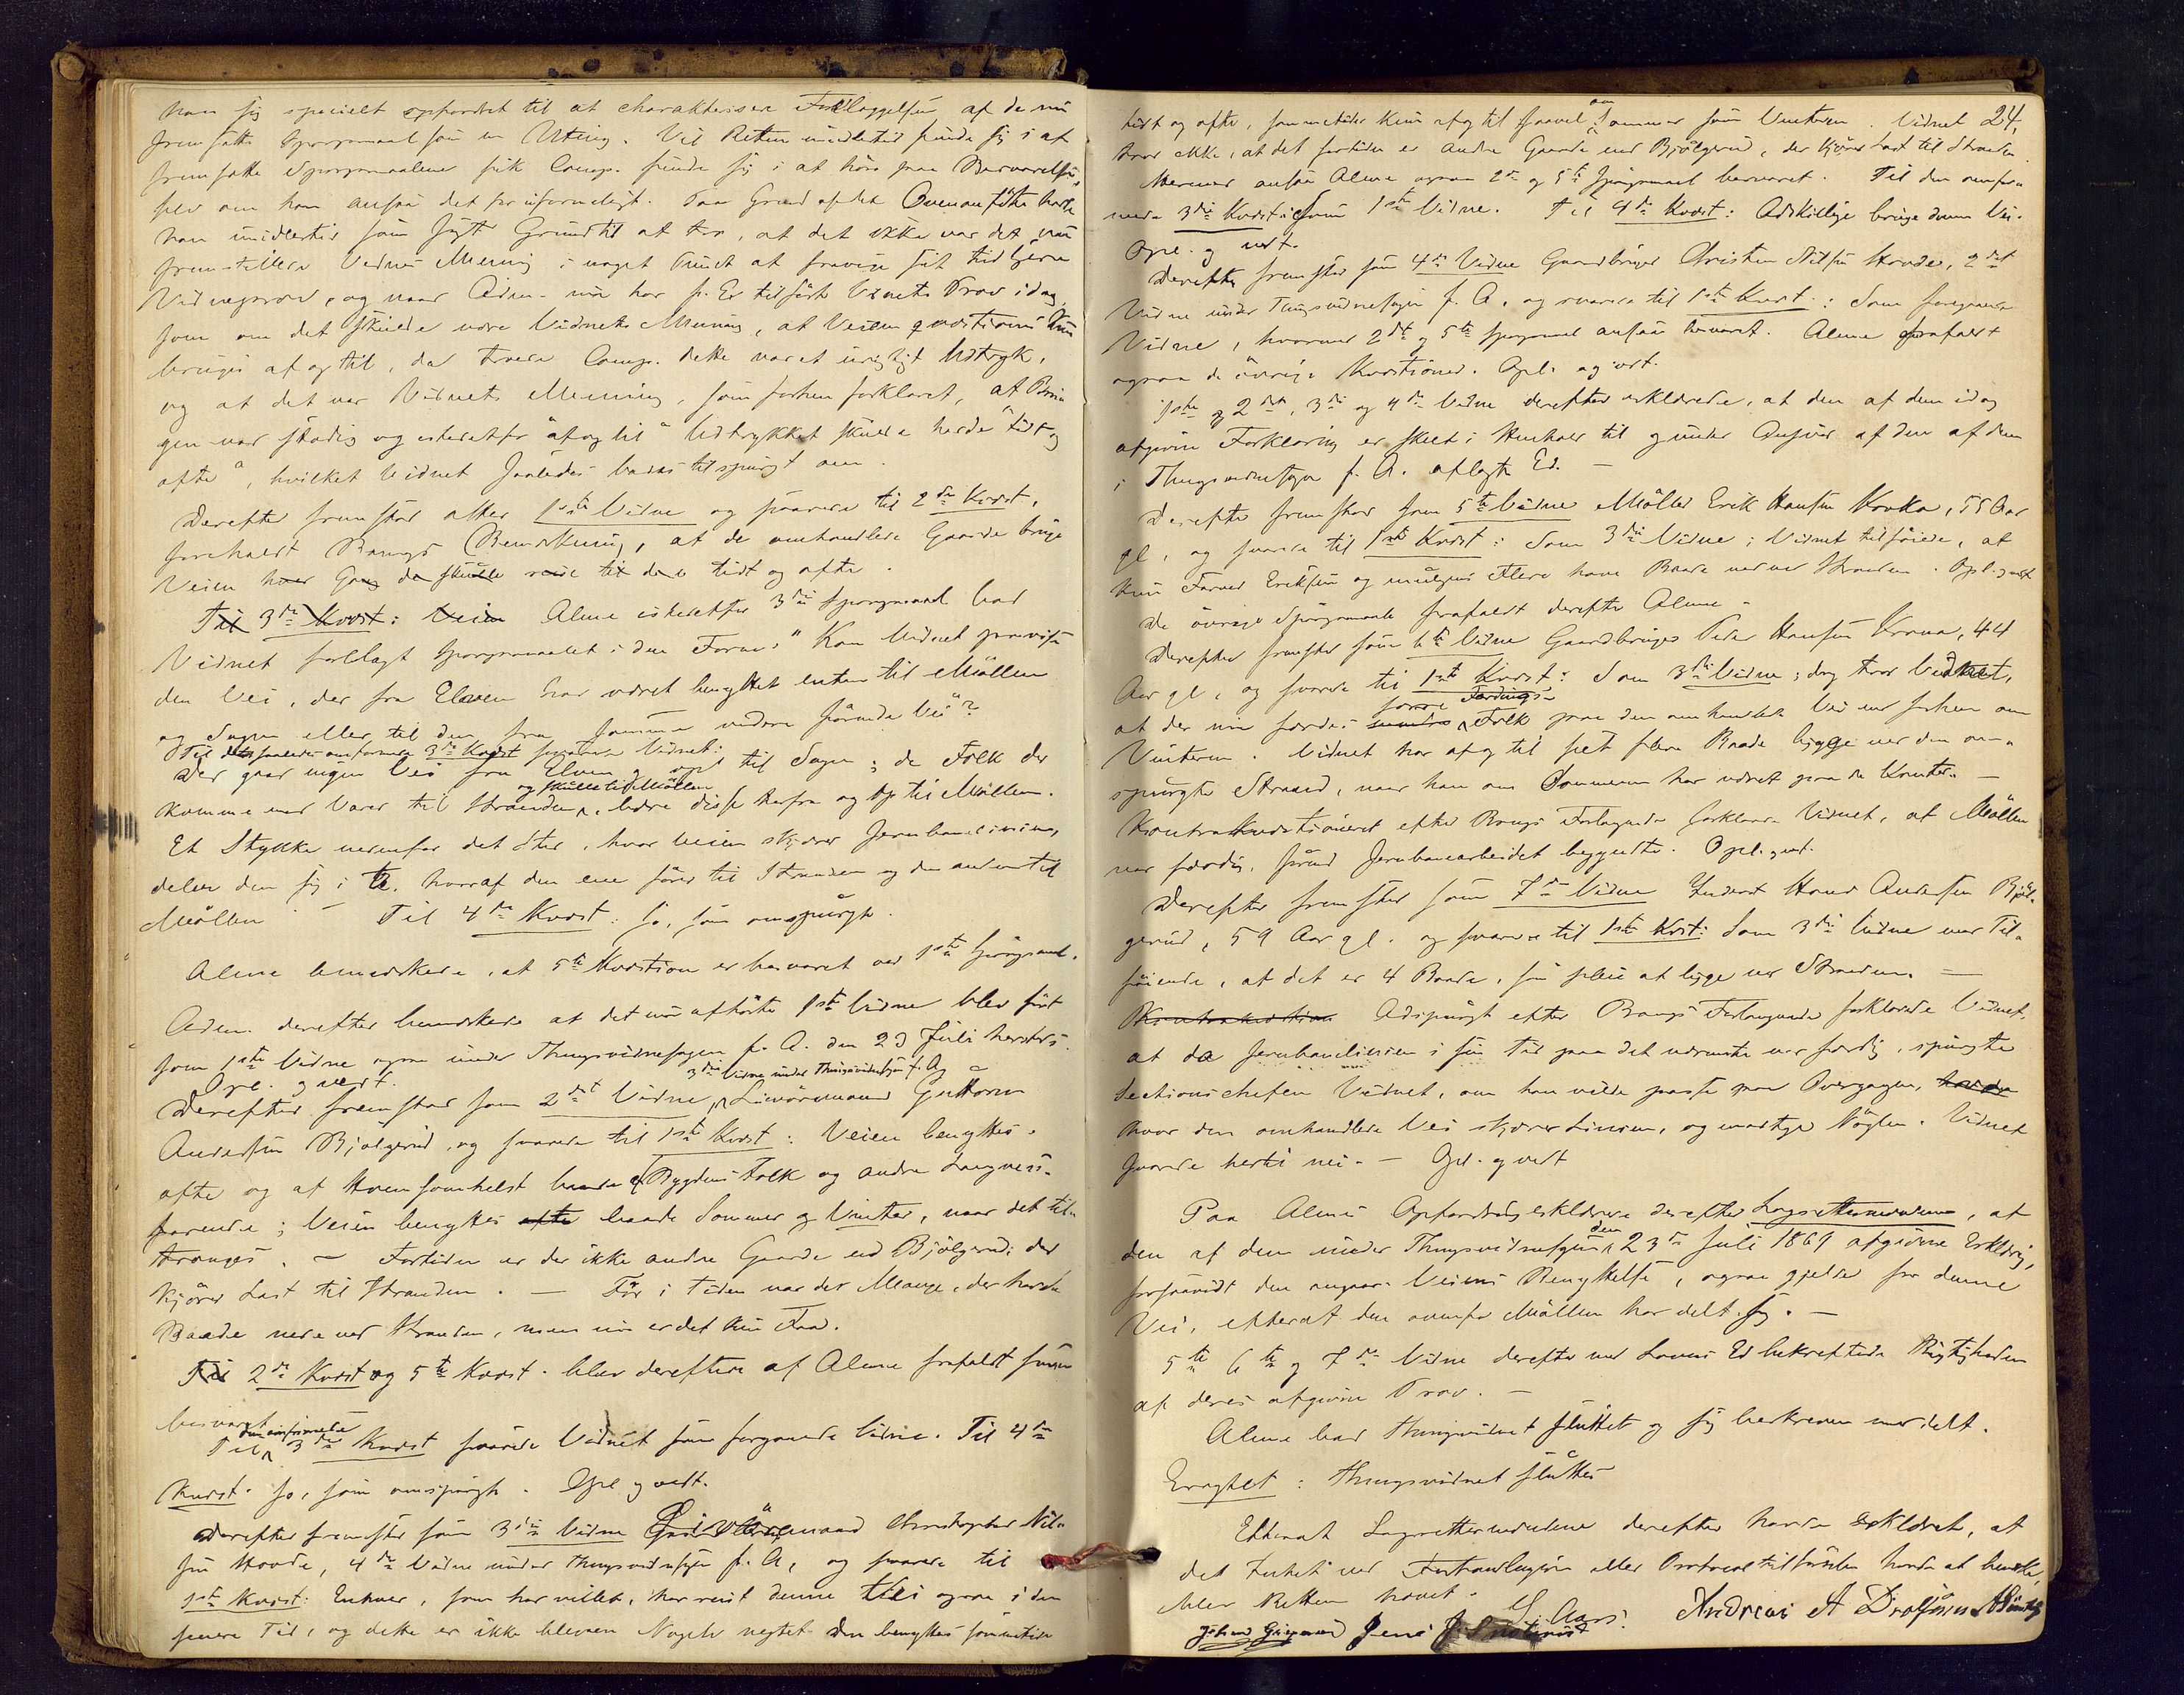 han sig specielt opfordret til at charakterisere Forelæggelsen af de nu
fremsatte Spørgsmaal som en Uting. Vil Retten imidlertid finde sig i at
fremsætte Spørgsmaalene fik Comp. finde sig i at høre paa Besvarelsen,
selv om han ansaa det for uformeligt. Paa Grund af det Ovenanførte havde
han imidlertid som sagt Grund til at tro, at det ikke var det nu
fremstillede Vidnes Mening i noget Punct at fravige sit tidligere
Vidneprov, og naar Adm. nu har f. Ex tilført Vidnets Prov idag,
som om det skulde være Vidnets Mening, at Veien quæstionis kun
bruges af og til, da troede Comp. dette var et urigtigt Udtryk,
og at det var Vidnets Mening, som forhen forklaret, at Brugen
var stadig og istedetfor "af og til" Udtrykket skulde hedde "tidt og
ofte", hvilket Vidnet saaledes bades tilspurgt om.
Derefter fremstod atter 1ste Vidne og svarede til 2det Kvæst,
foreholdt Bangs Bemærkning, at de omhandlede Gaarde bruge
Veien hver Gang de skulde reise til den tidt og ofte.
Til 3die Kvæst: Veien Alme istedetfor 3die Spørgsmaal bad
Vidnet forelagt Spørgsmaalet i den Form: "Kan Vidnet paavise
den Vei, der fra Elven har været benyttet enten til Møllen
og Sagen eller til den fra samme videre førende Vei"?
Til det saaledes omformede 3die Kvæst svarede Vidnet:
Der gaar ingen Vei fra Elven op til Sagen; de Folk der
komme med Varer til Stranden og skulle til Møllen, bære disse herfra og op til Møllen.
Et Stykke nedenfor det Sted, hvor Veien skjærer Jernbanelinien,
deler den sig i to, hvoraf den ene fører til Stranden og den anden til
Møllen. – Til 4de Kvæst: Ja, som omspurgt.
Alme bemærkede, at 5te Kvæstion er besvaret ved 1ste Spørgsmaal.
Adm. derefter bemærkede at det nu afhørte 1ste Vidne blev ført
som 1ste Vidne ogsaa under Thingsvidnesagen f. A. den 23 Juli herstds.
Opl. g vedt.
Derefter fremstod som 2det Vidne, 3die Vidne under Thingsvidnesagen f. A., Guttorm
Andersen Bjølgerud, og svarede til 1ste Kvæst: Veien benyttes
ofte og af Hvemsomhelst baade af Bygdens Folk og andre Langveisfarende;
Veien benyttes ofte baade Sommer og Vinter, naar det tiltrænges.
– Fortiden er der ikke andre Gaarde end Bjølgerud, der
kjører Last til Stranden. – Før i Tiden var der Mange, der havde
Baade nede ved Stranden, men nu er det kun Faa.
Til 2det Kvæst og 5te Kvæst. blev derefter af Alme frafaldt som
besvaret.
Til den omformede 3die Kvæst svarede Vidnet som foregaaende Vidne. Til 4de
Kvæst: Ja, som omspurgt. Opl. g vedt.
Derefter fremstod som 3die Vidne Christopher Nilsen
Hovde, 4de Vidne under Thingsvidnesagen f. A, og svarede til
1ste Kvæst: Enhver, som har villet, har reist denne Vei ogsaa i den
senere Tid, og dette er ikke bleven Nogen negtet. Den benyttes sommetider
24,
tidt og ofte, sommetider kun af og til saavel om Sommer som Vinteren. Vidnet
tror ikke, at det fortiden er andre Gaarde end Bjølgerud, der kjører Last til Stranden.
Hermed ansaa Alme ogsaa 2det og 5te Spørgsmaal besvaret. Til den omformede
3die Kvæst: Som 1ste Vidne. Til 4de Kvæst: Adskillige bruge denne Vei.
Opl. g vedt.
Derefter fremstod som 4de Vidne Gaardbruger Christen Nilsen Hovde, 2det
Vidne under Thingsvidnesagen f. A. og svarede til 1ste Kvæst: Som foregaaende
Vidne, hvormed 2det og 5te Spørgsmaal ansaaes besvaret. Alme frafaldt
ogsaa de øvrige Kvæstioner. Opl. og vedt.
1ste og 2det, 3die og 4de Vidne derefter erklærede, at den af dem idag
afgivne Forklaring er skeet i Henhold til og under Ansvar af den af dem
i Thingsvidnesagen f. A. aflagte Ed. –
Derefter fremstod som 5te Vidne Møller Erik Hansen Kroka, 55 Aar
gl, og svarede til 1ste Kvæst: Som 3die Vidne; Vidnet tilføiede, at
kun Farver Eriksen og muligens Flere have Baade nede ved Stranden. Opl. g vedt
De øvrige Spørgsmaale frafaldt derefter Alme.
Derefter fremstod som 6te Vidne Gaardbruger Peder Hansen Krona, 44
Aar gl, og svarede til 1ste Kvæst: Som 3die Vidne; dog tror Vidnet,
at der nu færdes mindre Folk paa den omhandlede Vei end forhen om
Vinteren. Vidnet har af og til seet flere Baade ligge ved den omspurgte
Strand, naar han om Sommeren har været paa de Kanter. –
Kontrakvæstioneret efter Bangs Forlangende forklarede Vidnet, at Møllen
var færdig, førend Jernbanearbeidet begyndte. Opl. g vedt.
Derefter fremstod som 7de Vidne Inderst Hans Andersen Bjølgerud,
59 Aar gl. og svarede til 1ste Kvst: Som 3die Vidne med Tilføiende,
at det er 4 Baade, som pleie at ligge ved Stranden. –
Kontrakvæstion Adspurgt efter Bangs Forlangende forklarede Vidnet,
at da Jernbanelinien i sin Tid paa det nærmeste var færdig, spurgte
Sectionschefen Vidnet, om han vilde passe paa Overgangen, havde
hvor den omhandlede Vei skjærer Linien, og modtage Nøglen. Vidnet
svarede hertil nei. – Opl. g vedt
Paa Almes Opfordring erklærede derefter Lagrettemændene, at
den af dem under Thingsvidnesagen den 23de Juli 1869 afgivne Erklæring,
forsaavidt den angaar Veiens Benyttelse, ogsaa gjelder for denne
Vei, efterat den ovenfor Møllen har delt sig. –
5te 6te og 7de Vidne derefter med Lovens Ed bekræftede Rigtigheden
af deres afgivne Prov. –
Alme bad Thingsvidnet sluttet og sig beskreven meddelt.
Eragtet: Thingsvidnet sluttes
Efterat Lagrettemændene derefter havde erklæret, at
det Intet ved Fortrædingen eller Protocoltilførslen havde at bemærke,
blev Retten hævet.
Aars. Andreas A
Johans Jens J.